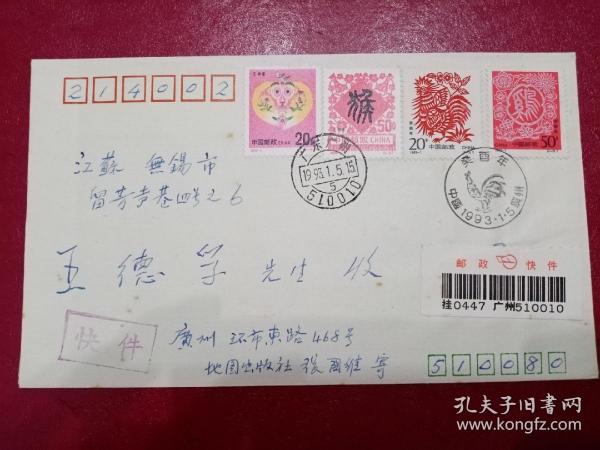 214002
20分
中国邮政
50分
中国邮政 CHINA
20分
中国邮政 CHINA
50分
猴
鸡
广东 广州
1993.1.5.15
5
510010
癸酉年
中国 1993·1·5 广州
江蘇 無锡市
留芳声巷四号之6
王德学 先生 收
邮政 快件
挂0447 广州510010
快件
廣州 环市東路468号
地图出版社 張国维 寄
510080
孔夫子旧书网
www.kongfz.com